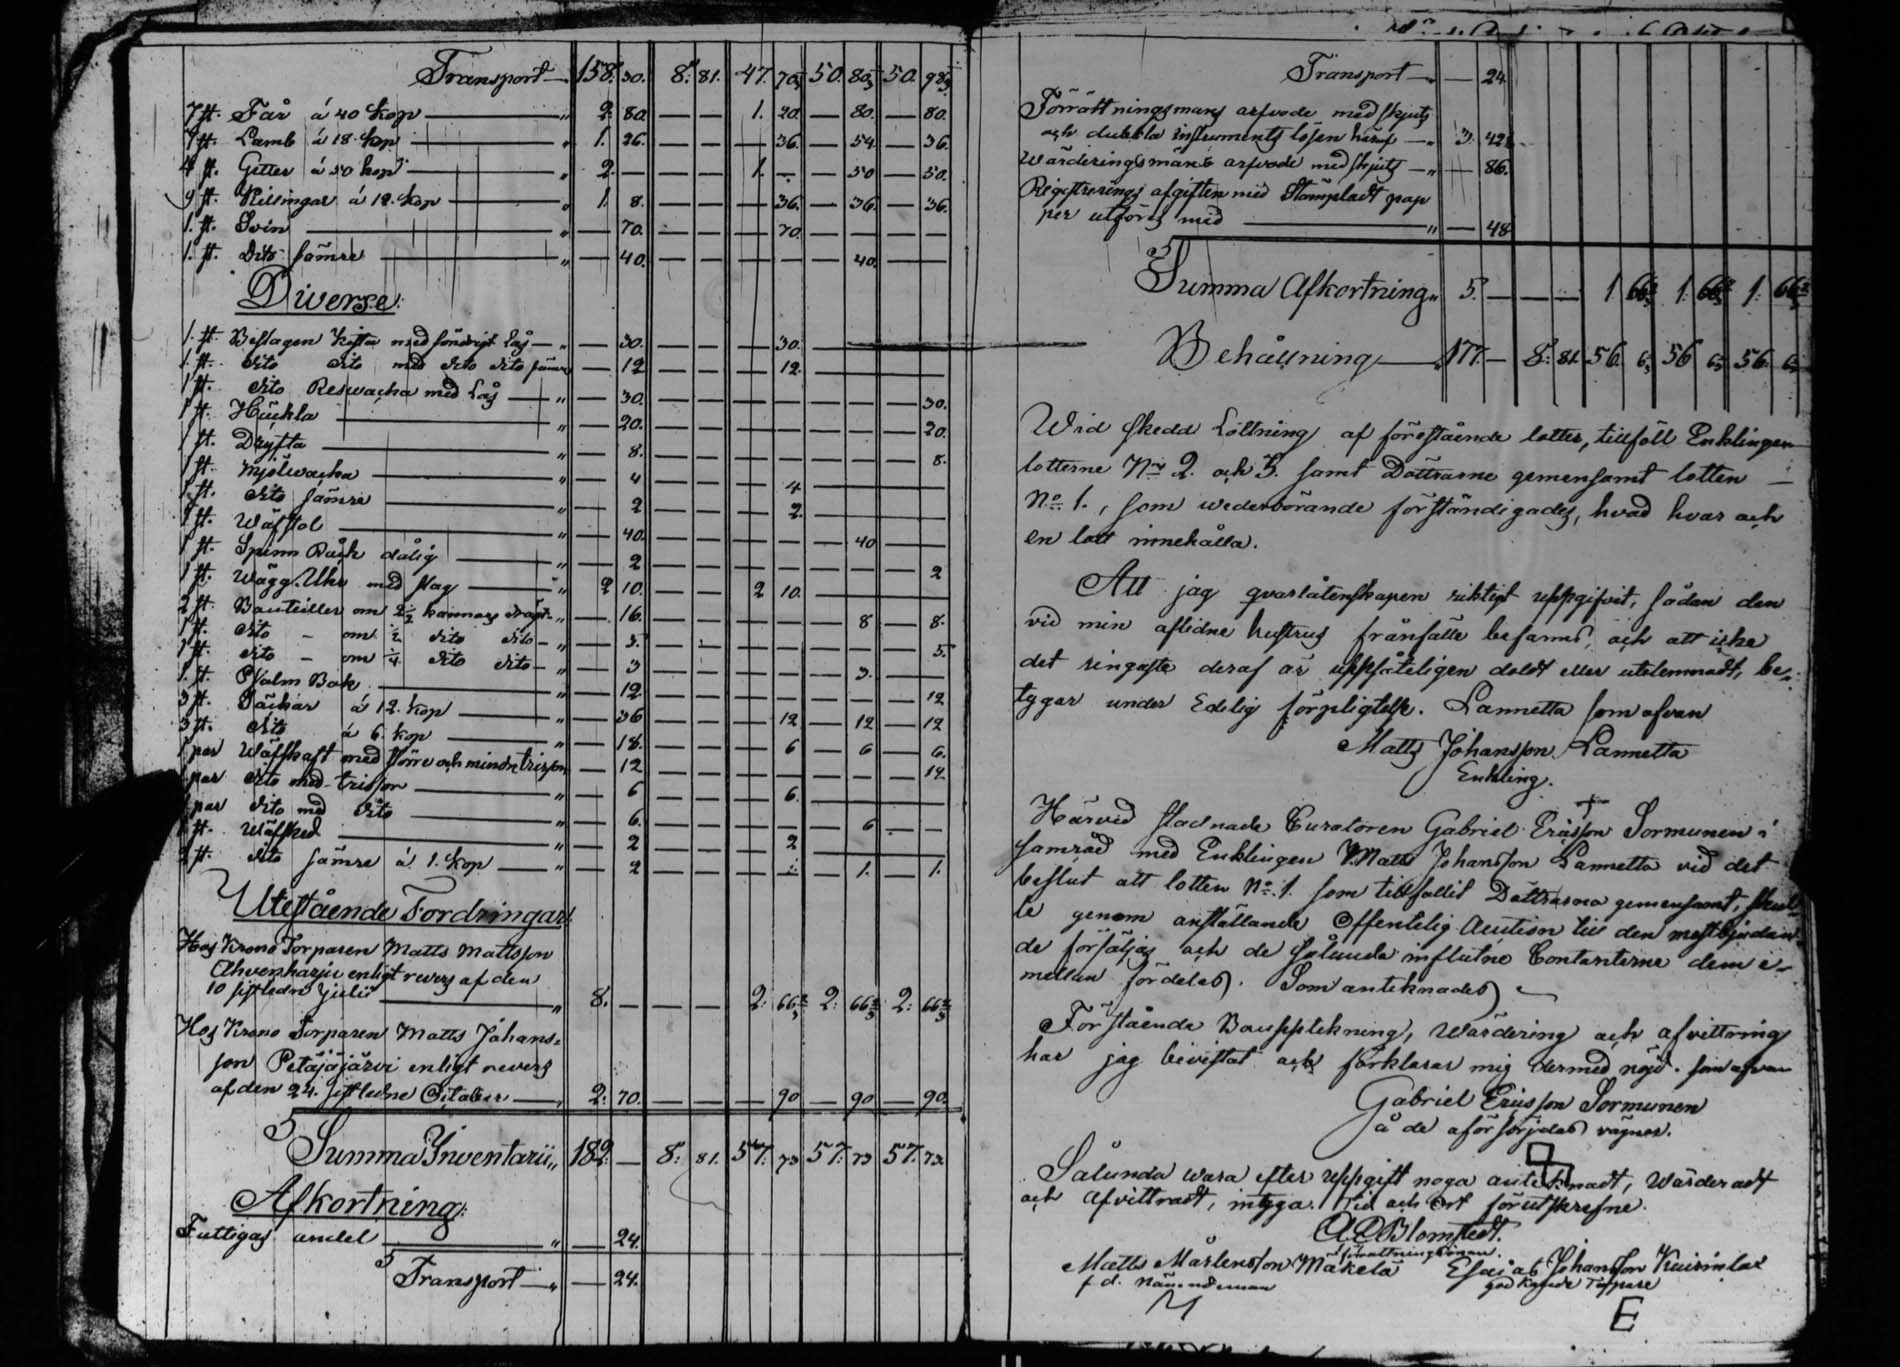 Transport — 158. 30. 8. 81. 47. 70 50. 80 50. 98
7 st. Får á 40 kop — " 2. 80. — — 1. 20. — 80. — 80.
7 st. Lamb á 18. kop — " 1. 26. — — — 36. — 54. — 36.
4 st. Getter á 50 kop — " 2. — — — 1. — — 50 — 50.
9 st. Killingar á 12. kop — " 1. 8. — — — 36. — 36. — 36.
1. st. Svin — " — 70. — — — 70. — — — —
1. st. Dito sämre — " — 40. — — — — — 40. — —
Diverse:
1. st. Beslagen Kista med söndrigt Lås — " — 30. — — — 30.
1. st. dito dito med dito dito sämre — 12 — — — 12.
1 st. dito Reswacka med Lås — " — 30. — — — — — — — 30.
1 st. Häckla — " — 20. — — — — — — — 20.
1 st. Dryfta — " — 8. — — — — — — — 8.
1 st. Mjölwacka — " — 4 — — — 4
1 st. dito sämre — " — 2 — — — 2.
1 st. Wäfstol — " — 40. — — — — — 40 — —
1 st. Spinn Råck dålig — " — 2 — — — — — — — 2
1 st. Wägg Uhr med slag — " 2 10. — — 2 10.
2 st. Bouteiller om 2½ kannors — " — 16. — — — — — 8 — 8.
1 st. dito – om ½ dito dito – " — 5. — — — — — — — 5.
1 st. dito – om ¼ dito dito – " — 3 — — — — — 3. — —
1. st. Psalm Bok — " — 12 — — — — — — — 12
3 st. Säckar á 12. kop — " — 36 — — — 12 — 12 — 12
3 st. dito á 6. kop — " — 18. — — — 6 — 6 — 6.
1 par Wäfskaft med större och mindre trissor — 12 — — — — — — — 12.
1 par dito med trissor — " — 6 — — — 6.
1 par dito med dito — " — 6. — — — — — 6 — —
1 st. Wäfsked — " — 2 — — — 2
2 st. dito sämre á 1. kop — " — 2 — — — — — 1. — 1.
Utestående Fordringar:
Hos Krono Torparen Matts Mattsson
Ahvenharju enligt revers af den
10 sistledne Julii — " 8. — — — 2. 66⅔ 2. 66⅔ 2. 66⅔
Hos Krono Torparen Matts Johans-
son Petäjäjärvi enligt revers
af den 24. sistledne October — " 2. 70. — — — 90 — 90 — 90.
Summa Inventarii " 182. — 8. 81. 57. 73 57. 73 57. 73.
Afkortning:
Fattigas andel — " — 24.
Transport — " — 24.
Transport — " — 24.
Förrättningsmans arfvode med skjuts
och dubbla instruments lösen häraf — " 3. 42.
Wärderingsmäns arfvode med skjuts — " — 86.
Registrerings afgiften med Stämpladt pap
per utgöres med — " — 48
Summa Afkortning " 5. — — — 1 66⅔ 1. 66⅔ 1. 66⅔
Behållning — " 177. — 8. 81. 56. 6 56 6 56. 6
Wid skedd Lottning af förestående lotter, tillföll Enklingen
lotterne N:ris 2. och 3. samt Döttrarne gemensamt lotten —
N:o 1., som wederbörande förständigades, hvad hvar och
en lott innehålla.
Att jag qvarlåtenskapen riktigt uppgifvit, sådan den
vid min aflidne hustrus frånfälle befanns, och att icke
det ringaste deraf är uppsåteligen doldt eller utelemnadt, be-
tygar under Edelig förpligtelse. Lannetta som ofvan
Matts Johansson Lannetta
Enkling.
Härvid stadnade Curatoren Gabriel Ericsson Sormunen i
samråd med Enklingen Matts Johansson Lannetta vid det
beslut att lotten N:o 1. som tillfallit Döttrarna gemensamt, skul-
le genom anställande Offentelig Auction till den mestbjudan-
de försäljas och de sålunda influtne Contanterne dem i-
mellan fördelas. Som anteknades
Förstående Bouppteckning, Wärdering och afvittring
har jag bevistat och förklarar mig dermed nöjd. som ofvan
Gabriel Ericsson Sormunen
å de oförsörjdas vägnar.
Sålunda wara efter uppgift noga antecknadt, Wärderadt
och Afvittradt, intyga. Tid och Ort förutskrefne.
A Blomstedt.
förrättningsman.
Matts Mårtensson Mäkelä Esaias Johansson Kuirinlax
f d. Nämndeman god Torppare
M E